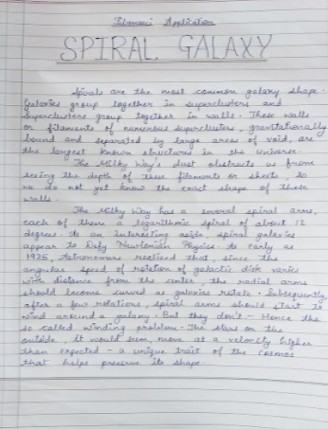 Fibonacci Application
SPIRAL GALAXY
Spirals are the most common galaxy shape.
Galaxies group together in superclusters and
superclusters group together in walls. These walls
or filaments of numerous superclusters, gravitationally
bound and separated by large areas of void, are
the largest known structures in the universe.
The Milky Way's dust obstructs us from
seeing the depth of these filaments or sheets, so
we do not yet know the exact shape of these
walls.
The Milky Way has a several spiral arms,
each of them a logarithmic spiral of about 12
degrees. As an interesting aside, spiral galaxies
appear to Defy Newtonian Physics. As early as
1925, Astronomers realised that, since the
angular speed of rotation of galactic disk varies
with distance from the center, the radial arms
should become curved as galaxies rotate. Subsequently
after a few rotations, spiral arms should start to
wind around a galaxy. But they don't - Hence the
so called winding problem. The stars on the
outside, it would seem, move at a velocity higher
than expected - a unique trait of the cosmos
that helps preserve its shape.